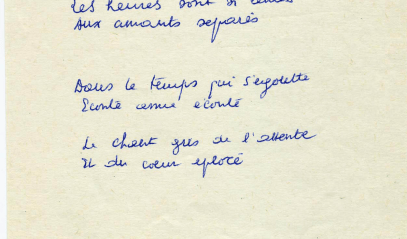 Les heures sont si lentes
Aux amants séparés
Dans le temps qui s'égoutte
Ecoute amie écoute
Le chant gris de l'attente
Et du coeur éploré